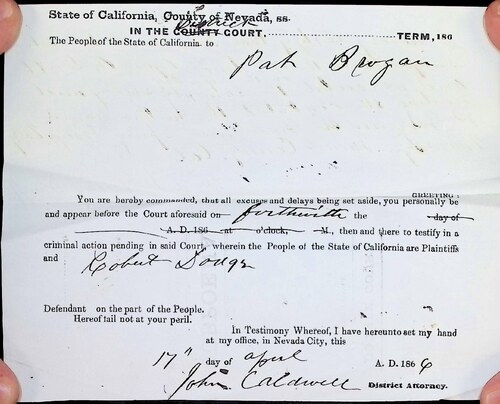 State of California, County of Nevada, ss.
District
IN THE COUNTY COURT. TERM, 186
The People of the State of California to
Pat Brogan
GREETING:
You are hereby commanded, that all excuses and delays being set aside, you personally be
and appear before the Court aforesaid on forthwith the day of
A. D. 186 at o'clock, M., then and there to testify in a
criminal action pending in said Court, wherein the People of the State of California are Plaintiffs
and Robert
Defendant on the part of the People.
Hereof fail not at your peril.
In Testimony Whereof, I have hereunto set my hand
at my office, in Nevada City, this
17" day of April A. D. 186 6
John Caldwell District Attorney.